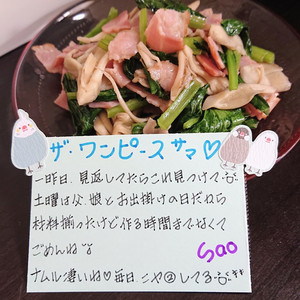 ザ・ワンピースサマ♡
一昨日、見返してたらこれ見つけて
土曜は父、娘とお出掛けの日だから
材料揃ったけど作る時間までなくて
ごめんね
Sao
ナムル凄いね♡毎日ニヤ②してる